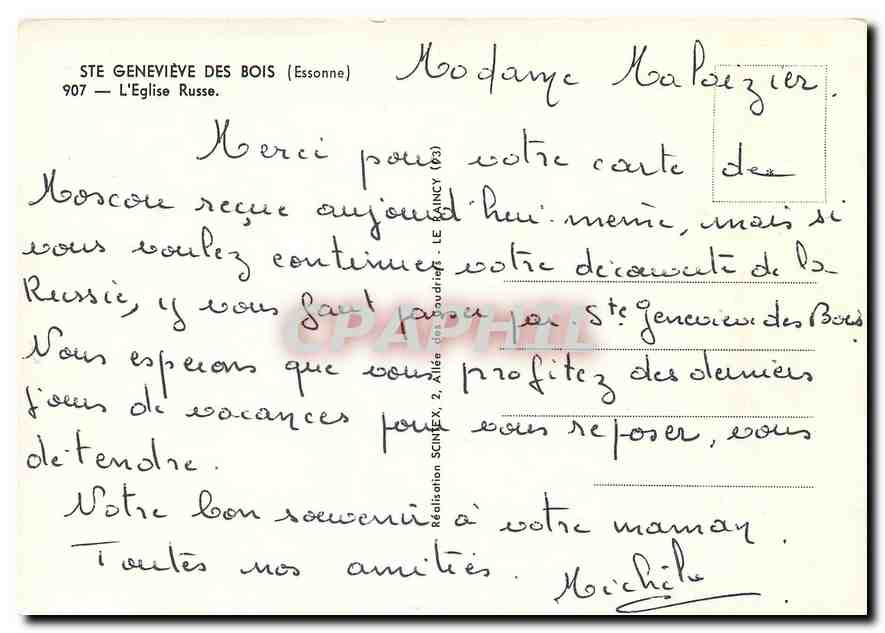 STE GENEVIÈVE DES BOIS (Essonne)
907 — L'Eglise Russe.
Madame Maloizier.
Merci pour votre carte de
Moscou reçue aujourd'hui-même, mais si
vous voulez continuer votre découverte de la
Russie, il vous faut passer par Ste Geneviève des Bois.
Nous espérons que vous profitez des derniers
jours de vacances pour vous reposer, vous
détendre.
Notre bon souvenir à votre maman.
Toutes nos amitiés.
Michèle
Réalisation SCINTEX, 2, Allée des Coudriers - LE RAINCY (93)
CPAPHIL